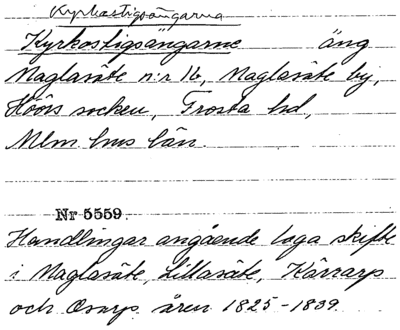 Kyrkostigsängarna
Kyrkostigsängarne äng
Maglasäte n:r 16, Maglasäte by,
Höörs socken, Frosta hd,
Mlm hus län.
Nr 5559.
Handlingar angående laga skifte
i Maglasäte, Lillasäte, Kärrarp
och Osarp åren 1825-1839.